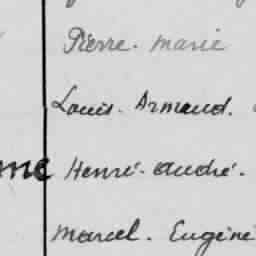 Pierre. Marie
Louis. Armand.
me Henri. André.
Marcel. Eugène